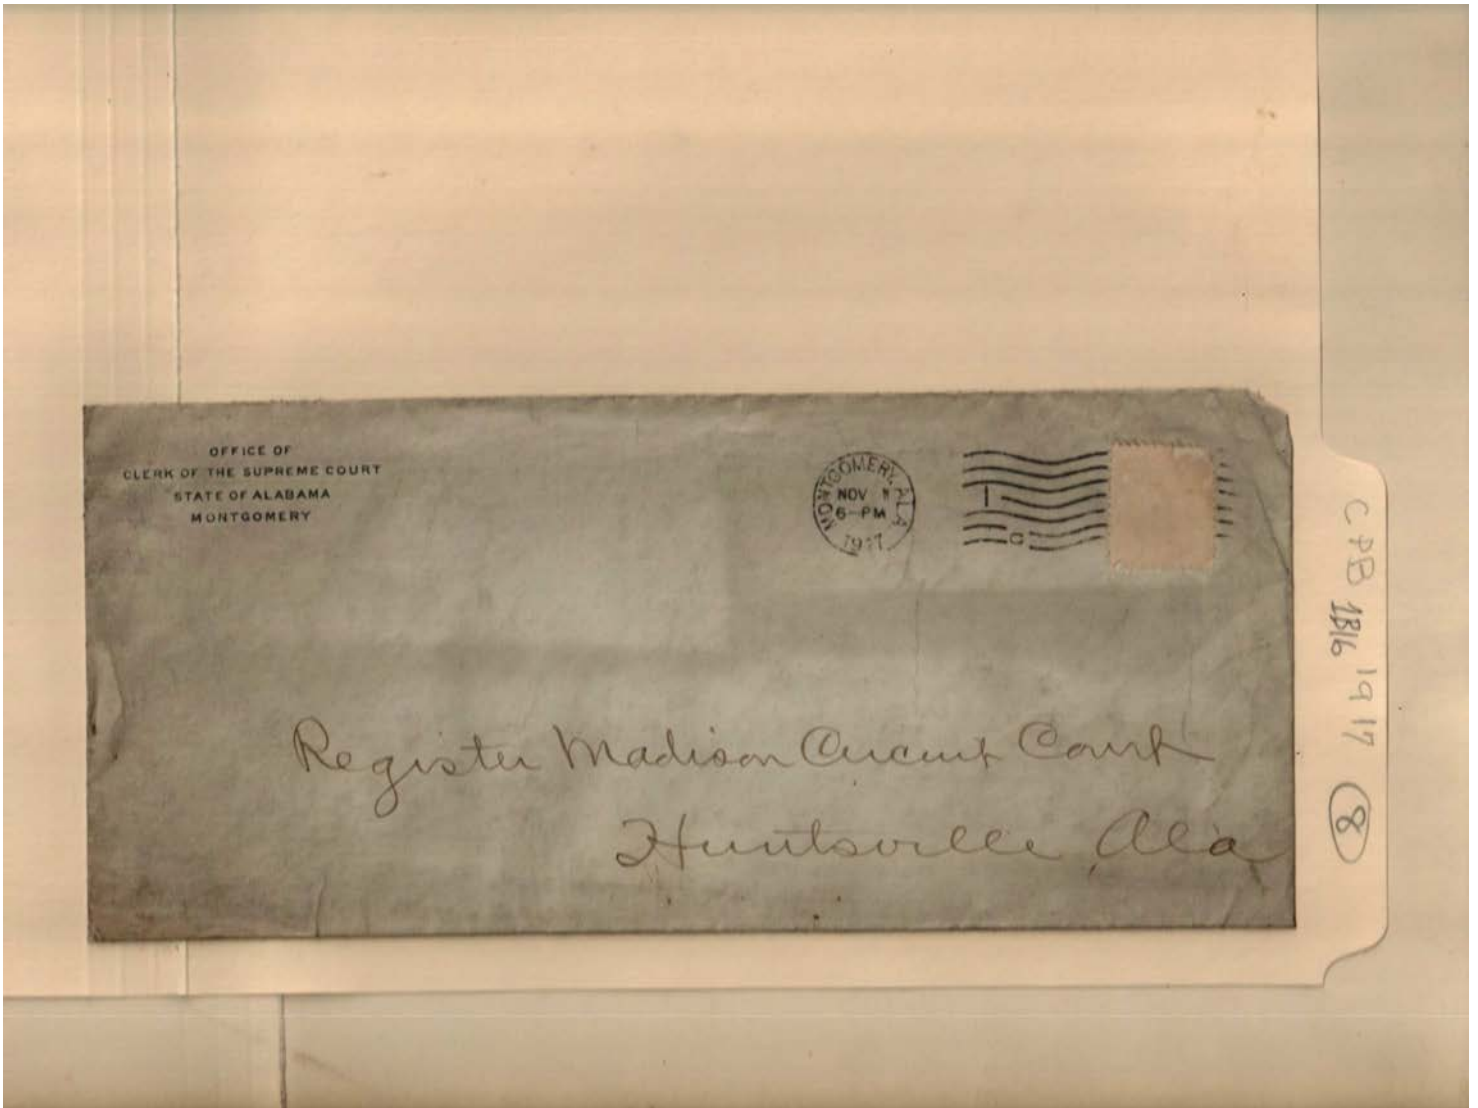 OFFICE OF
CLERK OF THE SUPREME COURT
STATE OF ALABAMA
MONTGOMERY
MONTGOMERY, ALA
NOV
6-PM
1917
Register Madison Circuit Court
Huntsville, Ala
CPB 1917 8